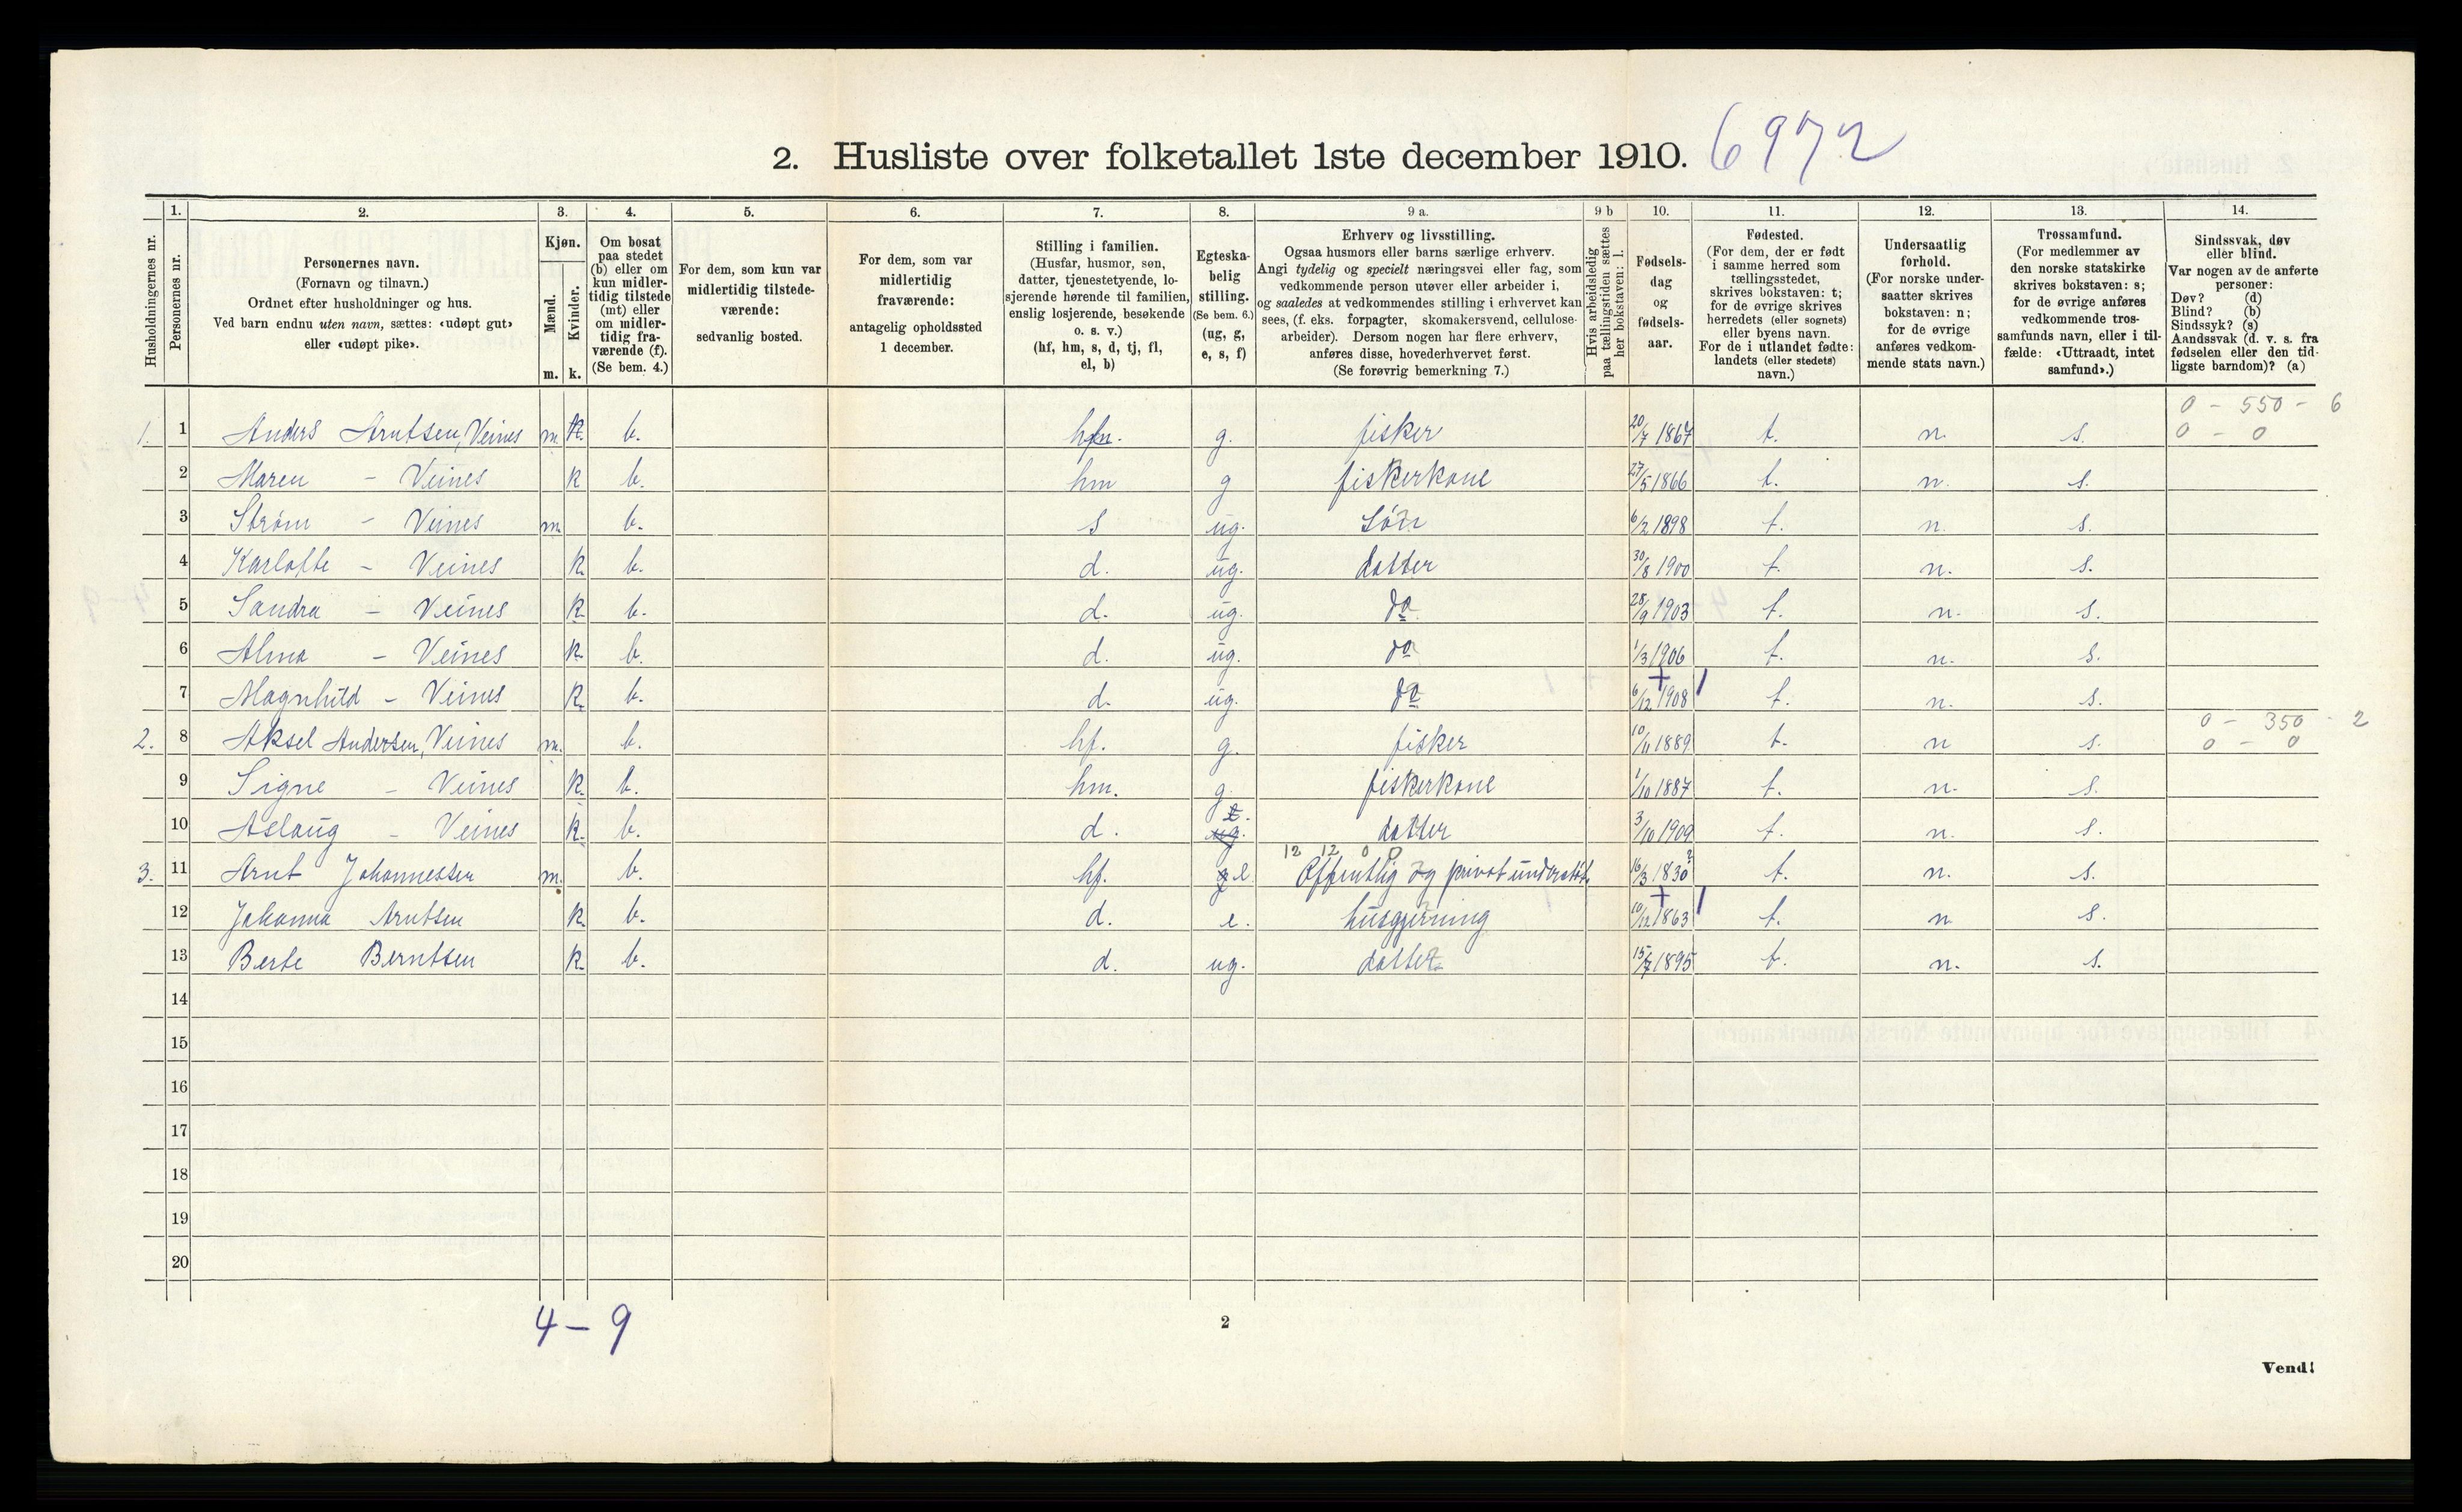 2. Husliste over folketallet 1ste december 1910. 6972
1. 2. 3. 4. 5. 6. 7. 8. 9 a. 9 b 10. 11. 12. 13. 14.
Husholdningernes nr.
Personernes nr.
Personernes navn.
(Fornavn og tilnavn.)
Ordnet efter husholdninger og hus.
Ved barn endnu uten navn, sættes: «udøpt gut»
eller «udøpt pike».
Kjøn.
Mænd.
Kvinder.
m. k.
Om bosat
paa stedet
(b) eller om
kun midler-
tidig tilstede
(mt) eller
om midler-
tidig fra-
værende (f).
(Se bem. 4.)
For dem, som kun var
midlertidig tilstede-
værende:
sedvanlig bosted.
For dem, som var
midlertidig
fraværende:
antagelig opholdssted
1 december.
Stilling i familien.
(Husfar, husmor, søn,
datter, tjenestetyende, lo-
sjerende hørende til familien,
enslig losjerende, besøkende
o. s. v.)
(hf, hm, s, d, tj, fl,
el, b)
Egteska-
belig
stilling.
(Se bem. 6.)
(ug, g,
e, s, f)
Erhverv og livsstilling.
Ogsaa husmors eller barns særlige erhverv.
Angi tydelig og specielt næringsvei eller fag, som
vedkommende person utøver eller arbeider i,
og saaledes at vedkommendes stilling i erhvervet kan
sees, (f. eks. forpagter, skomakersvend, cellulose-
arbeider). Dersom nogen har flere erhverv,
anføres disse, hovederhvervet først.
(Se forøvrig bemerkning 7.)
Hvis arbeidsledig
paa tællingstiden sættes
her bokstaven: l.
Fødsels-
dag
og
fødsels-
aar.
Fødested.
(For dem, der er født
i samme herred som
tællingsstedet,
skrives bokstaven: t;
for de øvrige skrives
herredets (eller sognets)
eller byens navn.
For de i utlandet fødte:
landets (eller stedets)
navn.)
Undersaatlig
forhold.
(For norske under-
saatter skrives
bokstaven: n;
for de øvrige
anføres vedkom-
mende stats navn.)
Trossamfund.
(For medlemmer av
den norske statskirke
skrives bokstaven: s;
for de øvrige anføres
vedkommende tros-
samfunds navn, eller i til-
fælde: «Uttraadt, intet
samfund».)
Sindssvak, døv
eller blind.
Var nogen av de anførte
personer:
Døv? (d)
Blind? (b)
Sindssyk? (s)
Aandssvak (d. v. s. fra
fødselen eller den tid-
ligste barndom)? (a)
0 - 550 - 6
1. 1 Anders Arntsen, Veines m. k. b. hf. g. fisker 20/7 1867 t. n. s. 0 - 0
2 Maren - Veines k b. hm g fiskerkone 27/5 1866 t. n. s.
3 Strøm - Veines m. b. s ug. Søn 6/2 1898 t. n. s.
4 Karlotte - Veines k b. d. ug. datter 30/8 1900 t. n. s.
5 Sandra - Veines k. b. d. ug. do 28/9 1903 t. n. s.
6 Alma - Veines k. b. d. ug. do 1/3 1906 t. n. s.
7 Magnhild - Veines k. b. d. ug. do 6/12 1908 t. n. s.
0 - 350 - 2
2. 8 Aksel Andersen, Veines m. b. hf. g. fisker 10/11 1889 t. n s. 0 - 0
9 Signe - Veines k. b. hm. g. fiskerkone 1/10 1887 t. n. s.
10 Aslaug - Veines k. b. d. ug. t. datter 3/10 1909 t. n. s.
12 12 0 0
3. 11 Arnt Johannessen m. b. hf. g e Offentlig og privat underståt. 16/3 1830 ? t. n. s.
12 Johanna Arntsen k. b. d. e. husgjerning 10/12 1863 t. n s.
13 Berte Berntsen k. b. d. ug. datter 15/7 1895 t. n. s.
14
15
16
17
18
19
20
4 - 9
2
Vend!